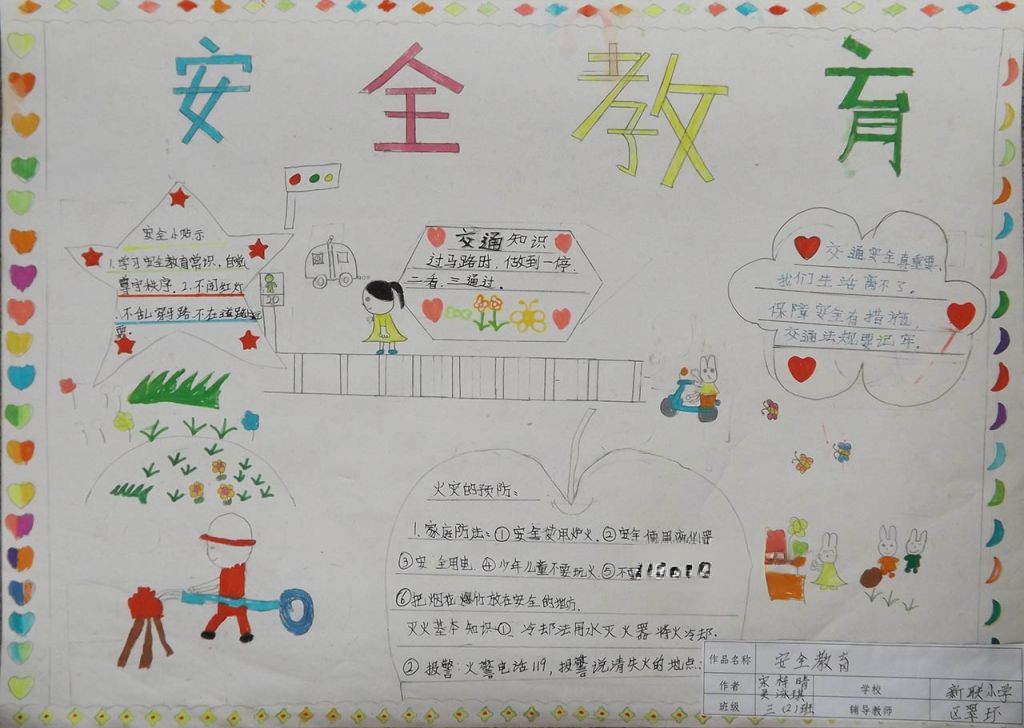 安全教育
安全小贴示
1.学习安全教育常识，自觉
遵守秩序.2.不闯红灯
.不乱穿马路不在道路
20
交通知识
过马路时，做到一停.
二看.三通过.
交通安全真重要.
我们生活离不了.
保障安全有措施,
交通法规要记牢.
火灾的预防：
1.家庭防法：①安全使用炉火.②安全使用
③安全用电.④少年儿童不要玩火⑤不
⑥把烟花爆竹放在安全的地方.
灭火基本知识①.冷却法用水灭火器将火冷却.
②报警：火警电话119,报警说清失火的地点.
作品名称 安全教育
作者 学校 新联小学
班级 三(2)班 辅导教师